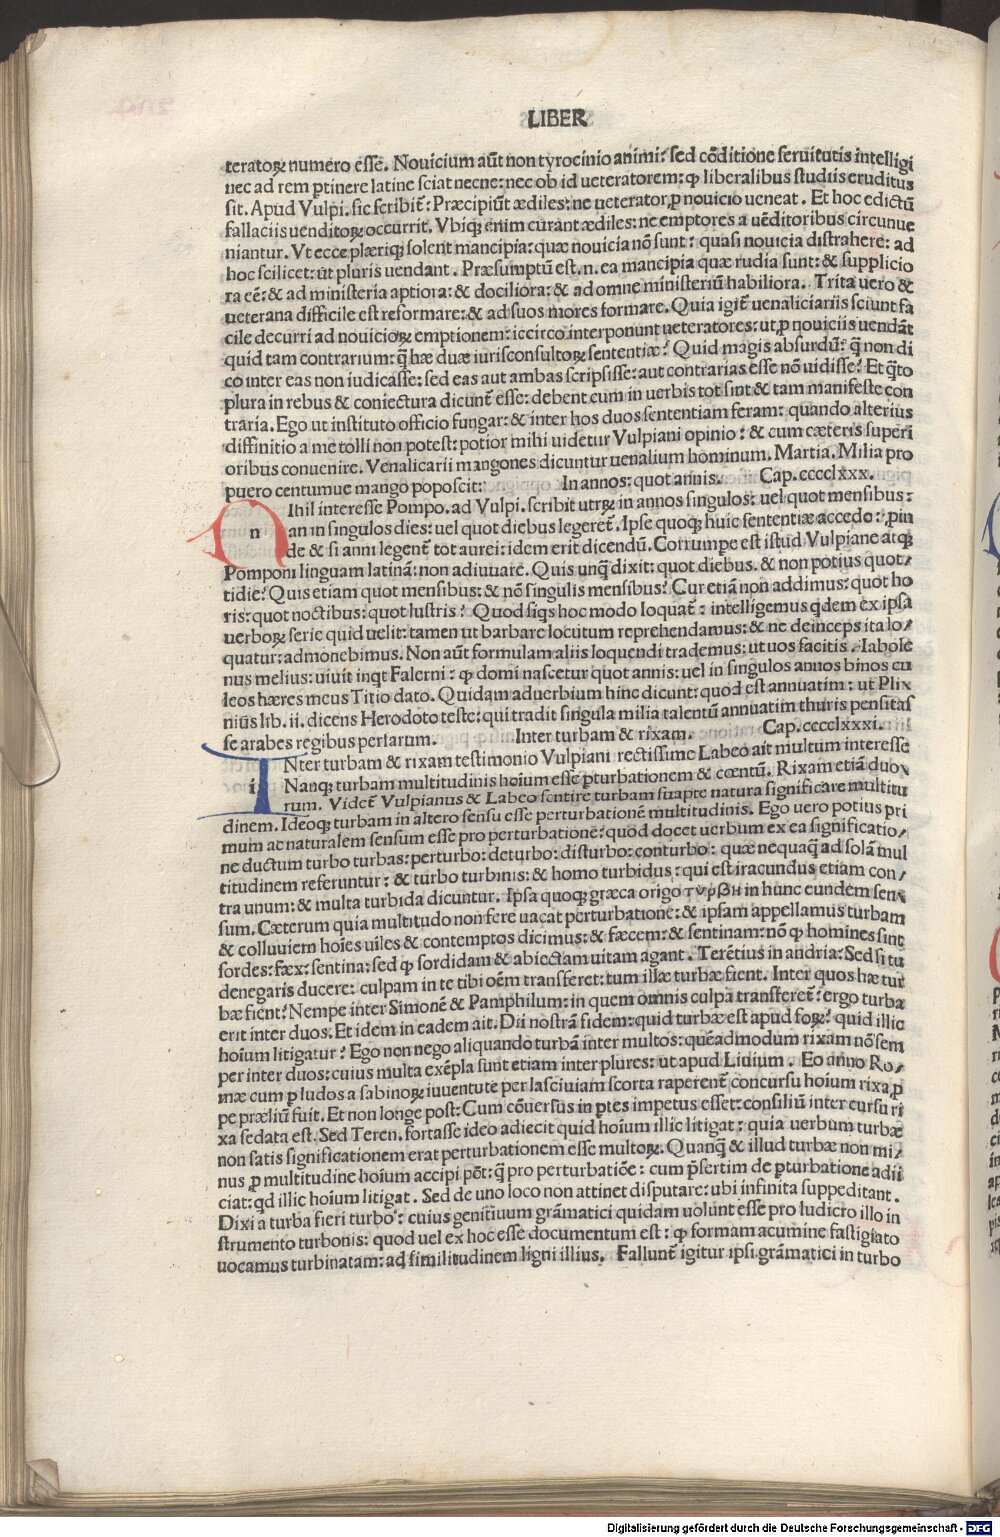 LIBER
teratoꝝ numero esse. Nouicium aūt non tyrocinio animi: sed cōditione seruitutis intelligi
nec ad rem ꝑtinere latine sciat necne: nec ob id ueteratorem: ꝙ liberalibus studiis eruditus
sit. Apud Vulpi. sic scribit̄: Præcipiūt ædiles: ne ueterator ꝓ nouicio ueneat. Et hoc edictū
fallaciis uenditoꝝ occurrit. Vbiqꝫ enim curant ædiles: ne emptores a uēditoribus circunue
niantur. Vt ecce plæriqꝫ solent mancipia: quæ nouicia nō sunt: quasi nouicia distrahere: ad
hoc scilicet: ut pluris uendant. Præsumptū est .n. ea mancipia quæ rudia sunt: & suplicio
ra eē: & ad ministeria aptiora: & dociliora: & ad omne ministeriū habiliora. Trita uero &
ueterana difficile est reformare: & ad suos mores formare. Quia igit̄ uenaliciariis sciunt fa
cile decurri ad nouicioꝝ emptionem: iccirco interponunt ueteratores: ut ꝓ nouiciis uendāt
quid tam contrarium: q̄ hæ duæ iurisconsultoꝝ sententiæ? Quid magis absurdū: q̄ non di
co inter eas non iudicasse: sed eas aut ambas scripsisse: aut contrarias esse nō uidisse? Et q̄to
plura in rebus & coniectura dicunt̄ esse: debent cum in uerbis tot sint & tam manifeste con
traria. Ego ut instituto officio fungar: & inter hos duos sententiam feram: quando alterius
diffinitio a me tolli non potest: potior mihi uidetur Vulpiani opinio: & cum cæteris superi
oribus conuenire. Venalicarii mangones dicuntur uenalium hominum. Martia. Milia pro
puero centumue mango poposcit: In annos: quot annis. Cap. cccclxxx.
n Ihil interesse Pompo. ad Vulpi. scribit utrꝝ in annos singulos: uel quot mensibus:
an in singulos dies: uel quot diebus legeret̄. Ipse quoqꝫ huic sententiæ accedo: ꝓin
de & si anni legent̄ tot aurei: idem erit dicendū. Corrumpe est istud Vulpiane atqꝫ
Pomponi linguam latinā: non adiuuare. Quis unq̄ dixit: quot diebus. & non potius quot/
tidie? Quis etiam quot mensibus: & nō singulis mensibus? Cur etiā non addimus: quot ho
ris: quot noctibus: quot lustris? Quod siqs hoc modo loquat̄: intelligemus qdem ex ipsa
uerboꝝ serie quid uelit: tamen ut barbare locutum reprehendamus: & ne deinceps ita lo/
quatur: admonebimus. Non aūt formulam aliis loquendi trademus: ut uos facitis. Iabole
nus melius: uiuit inqt Falerni: ꝙ domi nascetur quot annis: uel in singulos annos binos cu
leos hæres meus Titio dato. Quidam aduerbium hinc dicunt: quod est annuatim: ut Pli
nius lib. ii. dicens Herodoto teste: qui tradit singula milia talentū annuatim thuris pensitas
se arabes regibus persarum. Inter turbam & rixam. Cap. cccclxxxi.
i Nter turbam & rixam testimonio Vulpiani rectissime Labeo ait multum interesse
Nanqꝫ turbam multitudinis hoium esse ꝑturbationem & cœntū. Rixam etiā duo
rum. Videt̄ Vulpianus & Labeo sentire turbam suapte natura significare multitu
dinem. Ideoqꝫ turbam in altero sensu esse perturbationē multitudinis. Ego uero potius pri
mum ac naturalem sensum esse pro perturbatione: quod docet uerbum ex ea significatio/
ne ductum turbo turbas: perturbo: deturbo: disturbo: conturbo: quæ nequaq̄ ad solā mul
titudinem referuntur: & turbo turbinis: & homo turbidus: qui est iracundus etiam con/
tra unum: & multa turbida dicuntur. Ipsa quoqꝫ græca origo τυρβη in hunc eundem sen
sum. Cæterum quia multitudo non fere uacat perturbatione: & ipsam appellamus turbam
& colluuiem hoīes uiles & contemptos dicimus: & fæcem: & sentinam: nō ꝙ homines sint
sordes: fæx: sentina: sed ꝙ sordidam & abiectam uitam agant. Terētius in andria: Sed si tu
denegaris ducere: culpam in te tibi oēm transferet: tum illæ turbæ fient. Inter quos hæ tur
bæ fient? Nempe inter Simonē & Pamphilum: in quem omnis culpa transferet̄? ergo turba
erit inter duos. Et idem in eadem ait. Dii nostrā fidem: quid turbæ est apud foꝝ? quid illic
hoium litigatur? Ego non nego aliquando turbā inter multos: quēadmodum rixam nō sem
per inter duos: cuius multa exēpla sunt etiam inter plures: ut apud Liuium. Eo anno Ro/
mæ cum ꝑ ludos a sabinoꝝ iuuentute per lasciuiam scorta raperent̄ concursu hoium rixa ꝓ
pe præliū fuit. Et non longe post: Cum cōuersus in ꝑtes impetus esset: consiliū inter cursu ri
xa sedata est. Sed Teren. fortasse ideo adiecit quid hoium illic litigat: quia uerbum turbæ
non satis significationem erat perturbationem esse multoꝝ. Quanq̄ & illud turbæ non mi/
nus ꝓ multitudine hoium accipi pōt: q̄ pro perturbatiōe: cum ꝑsertim de ꝑturbatione adii
ciat: qd illic hoium litigat. Sed de uno loco non attinet disputare: ubi infinita suppeditant.
Dixi a turba fieri turbo: cuius genitiuum grāmatici quidam uolunt esse pro ludicro illo in
strumento turbonis: quod uel ex hoc esse documentum est: ꝙ formam acumine fastigiato
uocamus turbinatam: ad similitudinem ligni illius. Fallunt̄ igitur ipsi grāmatici in turbo
Digitalisierung gefördert durch die Deutsche Forschungsgemeinschaft - DFG